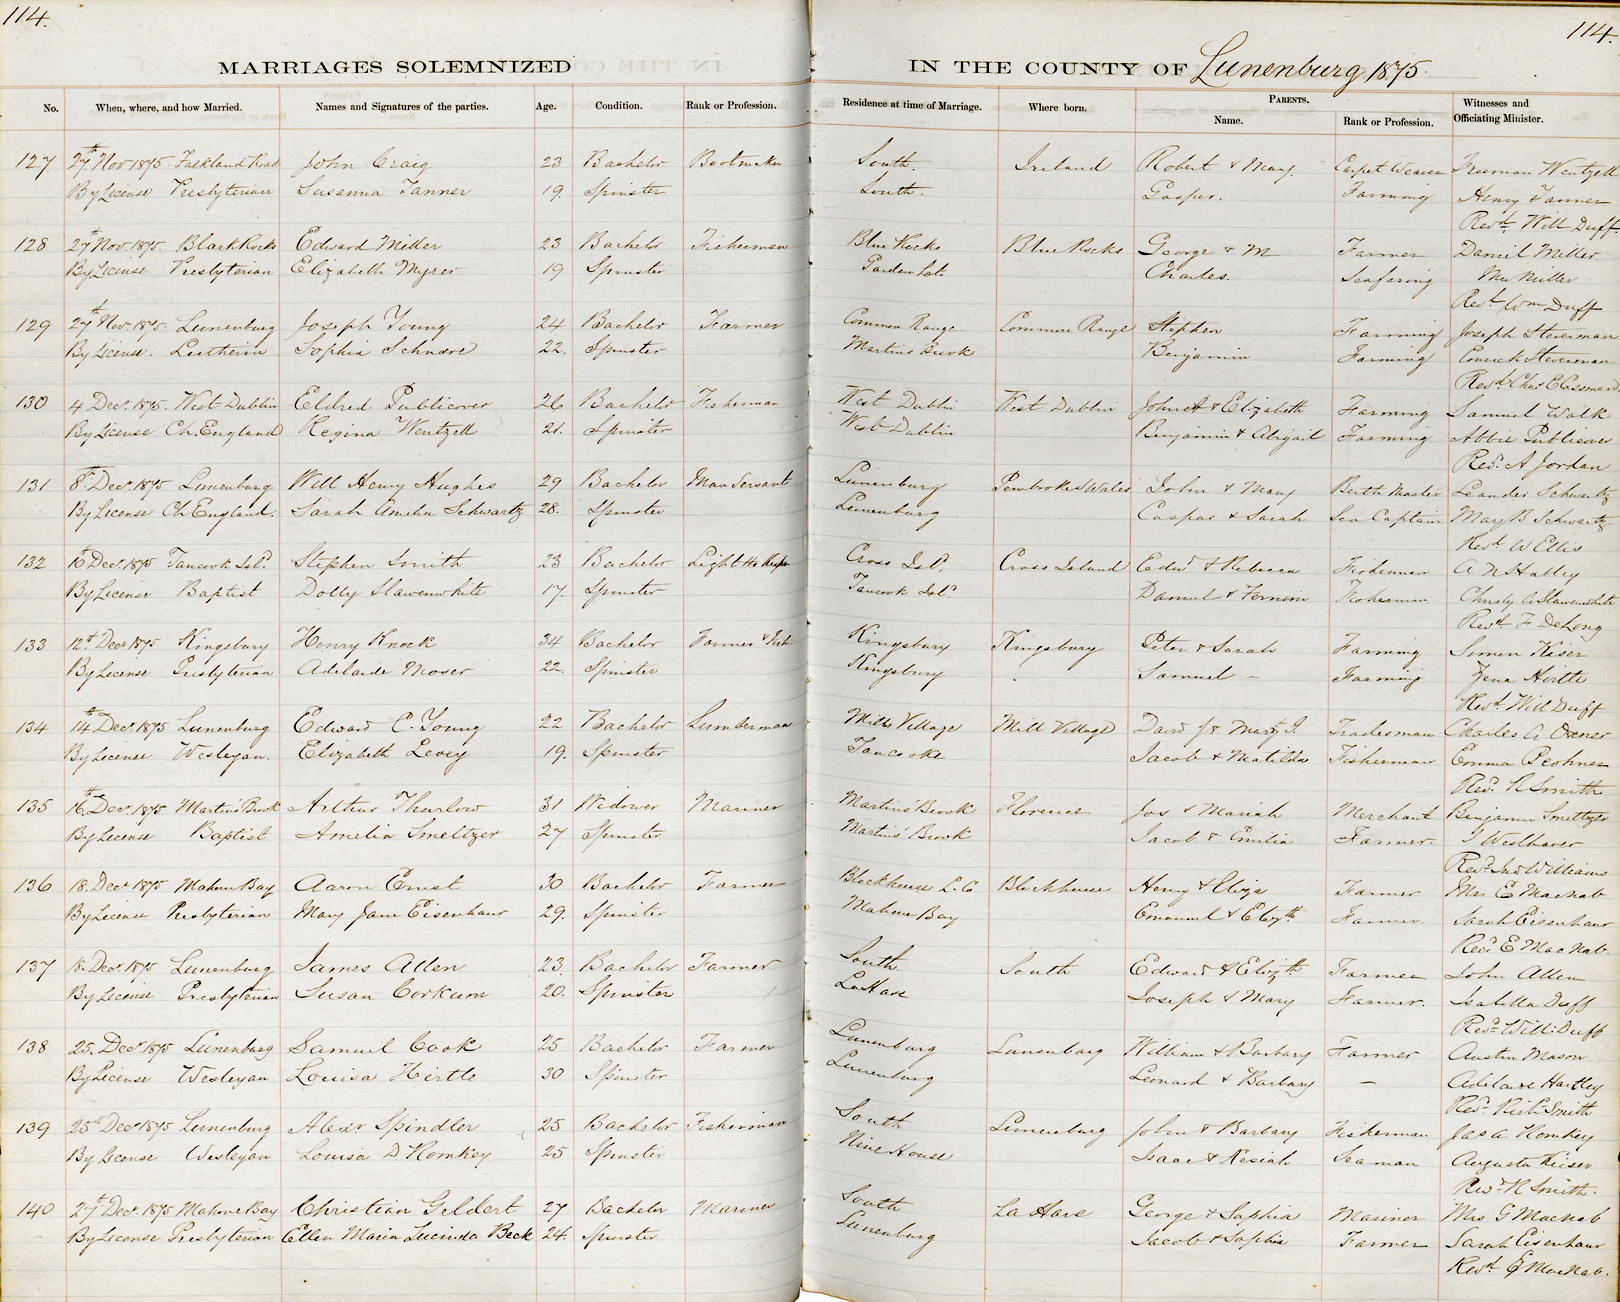 114.
114.
MARRIAGES SOLEMNIZED IN THE COUNTY OF Lunenburg 1875.
No. When, where, and how Married. Names and Signatures of the parties. Age. Condition. Rank or Profession. Residence at time of Marriage. Where born. PARENTS. Name. Rank or Profession. Witnesses and Officiating Minister.
127 27th Nov 1875. Falkland Road John Craig 23 Bachelor Bootmaker South. Ireland Robert & Mary. Carpet Weaver Freeman Wentzell
By License Presbyterian Susanna Tanner 19. Spinster South. Gasper. Farming Henry Tanner
Revd. Will Duff.
128 27th Nov. 1875. Black Rocks Edward Miller 23 Bachelor Fisherman Blue Rocks Blue Rocks George & M Farmer Daniel Miller
By License Presbyterian Elizabeth Myrer 19 Spinster Garden Lots. Charles. Seafaring Miller
Revd. Wm Duff
129 27th Nov. 1875. Lunenburg Joseph Young 24 Bachelor Farmer Common Range Common Range Stephen Farming Joseph Steverman
By License. Lutherin Sophia Schnare 22. Spinster Martins Brook Benjamin Farming Steverman
Revd. Chas E Cossmann
130 4 Decr. 1875. West Dublin Eldred Publicover 26 Bachelor Fisherman West Dublin West Dublin John A & Elizabeth Farming Samuel Walk
By License Ch. England Regina Wentzell 21. Spinster West Dublin Benjamin & Abigail Farming Abbie Publicover
Revd. A Jordan
131 8th Decr. 1875 Lunenburg Will Henry Hughes 29 Bachelor Man Servant Lunenburg Pembroke S Wales John & Mary Berth Master Leander Schwartz
By License Ch England. Sarah Amelia Schwartz 28. Spinster Lunenburg Caspar & Sarah Sea Captain May B. Schwartz
Revd W Ellis
132 Decr. 1875 Tancook Isld. Stephen Smith 23 Bachelor Light Ho Keeper Cross Isd. Cross Island Edwd & Rebecca Fisherman
By License Baptist Dolly Slawenwhite 17. Spinster Tancook Isld Daniel & Fisherman Christy Slawenwhite
Revd. F DeLong
133 12th Decr 1875 Kingsbury Henry Knock 34 Bachelor Farmer & Fish Kingsbury Kingsbury Peter & Sarah Farming Simon Kiser
By License Presbyterian Adelaide Moser 22. Spinster Kingsbury Samuel – Farming Hirtle
Revd. Will Duff
134 14th Decr. 1875 Lunenburg Edward C. Young 22 Bachelor Lumberman Mills Village Mill Village David Jr Mary J. Tradesman Charles A Oxner
By License Wesleyan. Elizabeth Levey 19. Spinster Tancooke Jacob & Matilda Fisherman Emma
Revd. R Smith
135 16th Decr. 1875 Martins Brook Arthur Thurlow 31 Widower Mariner Martins Brook Florence Jos & Mariah Merchant Benjamin Smeltzer
By License Baptist Amelia Smeltzer 27 Spinster Martins' Brook Jacob & Emilia Farmer. J Westhaver
Revd. Jno Williams
136 18. Decr 1875 Mahone Bay Aaron Ernst 30 Bachelor Farmer Blockhouse L. Co Blockhouse Henry & Eliza Farmer Mrs. E MacNab
By License Presbyterian Mary Jane Eisenhaur 29. Spinster Mahone Bay Emanuel & Elizth Farmer. Sarah Eisenhaur
Revd. E MacNab
137 18. Decr. 1875 Lunenburg James Allen 23. Bachelor Farmer South. South Edward & Elizth Farmer John Allen
By License Presbyterian Susan Corkum 20. Spinster LaHave Joseph & Mary Farmer. Isabella Duff
Revd. Will: Duff
138 25. Decr. 1875 Lunenburg Samuel Cook 25 Bachelor Farmer Lunenburg Lunenburg William & Barbary Farmer Austin Mason
By License Wesleyan Louisa Hirtle 30 Spinster Lunenburg Leonard & Barbary – Adelaide Hartley
Revd. Richd Smith
139 25th Decr 1875 Lunenburg Alexr Spindler 25 Bachelor Fisherman South Lunenburg John & Barbary Fisherman Jas A Homkey
By License Wesleyan Louisa D Homkey 25 Spinster Nine House Isaac & Kesiah Seaman Augusta Kiser
Revd. R Smith.
140 27th Decr. 1875 Mahone Bay Christian Geldert 27 Bachelor Mariner South La Have George & Sophia Mariner Mrs G MacNab
By License Presbyterian Ellen Maria Lucinda Beck 24. Spinster Lunenburg Jacob & Sophia Farmer Sarah Eisenhaur
Revd. E MacNab.